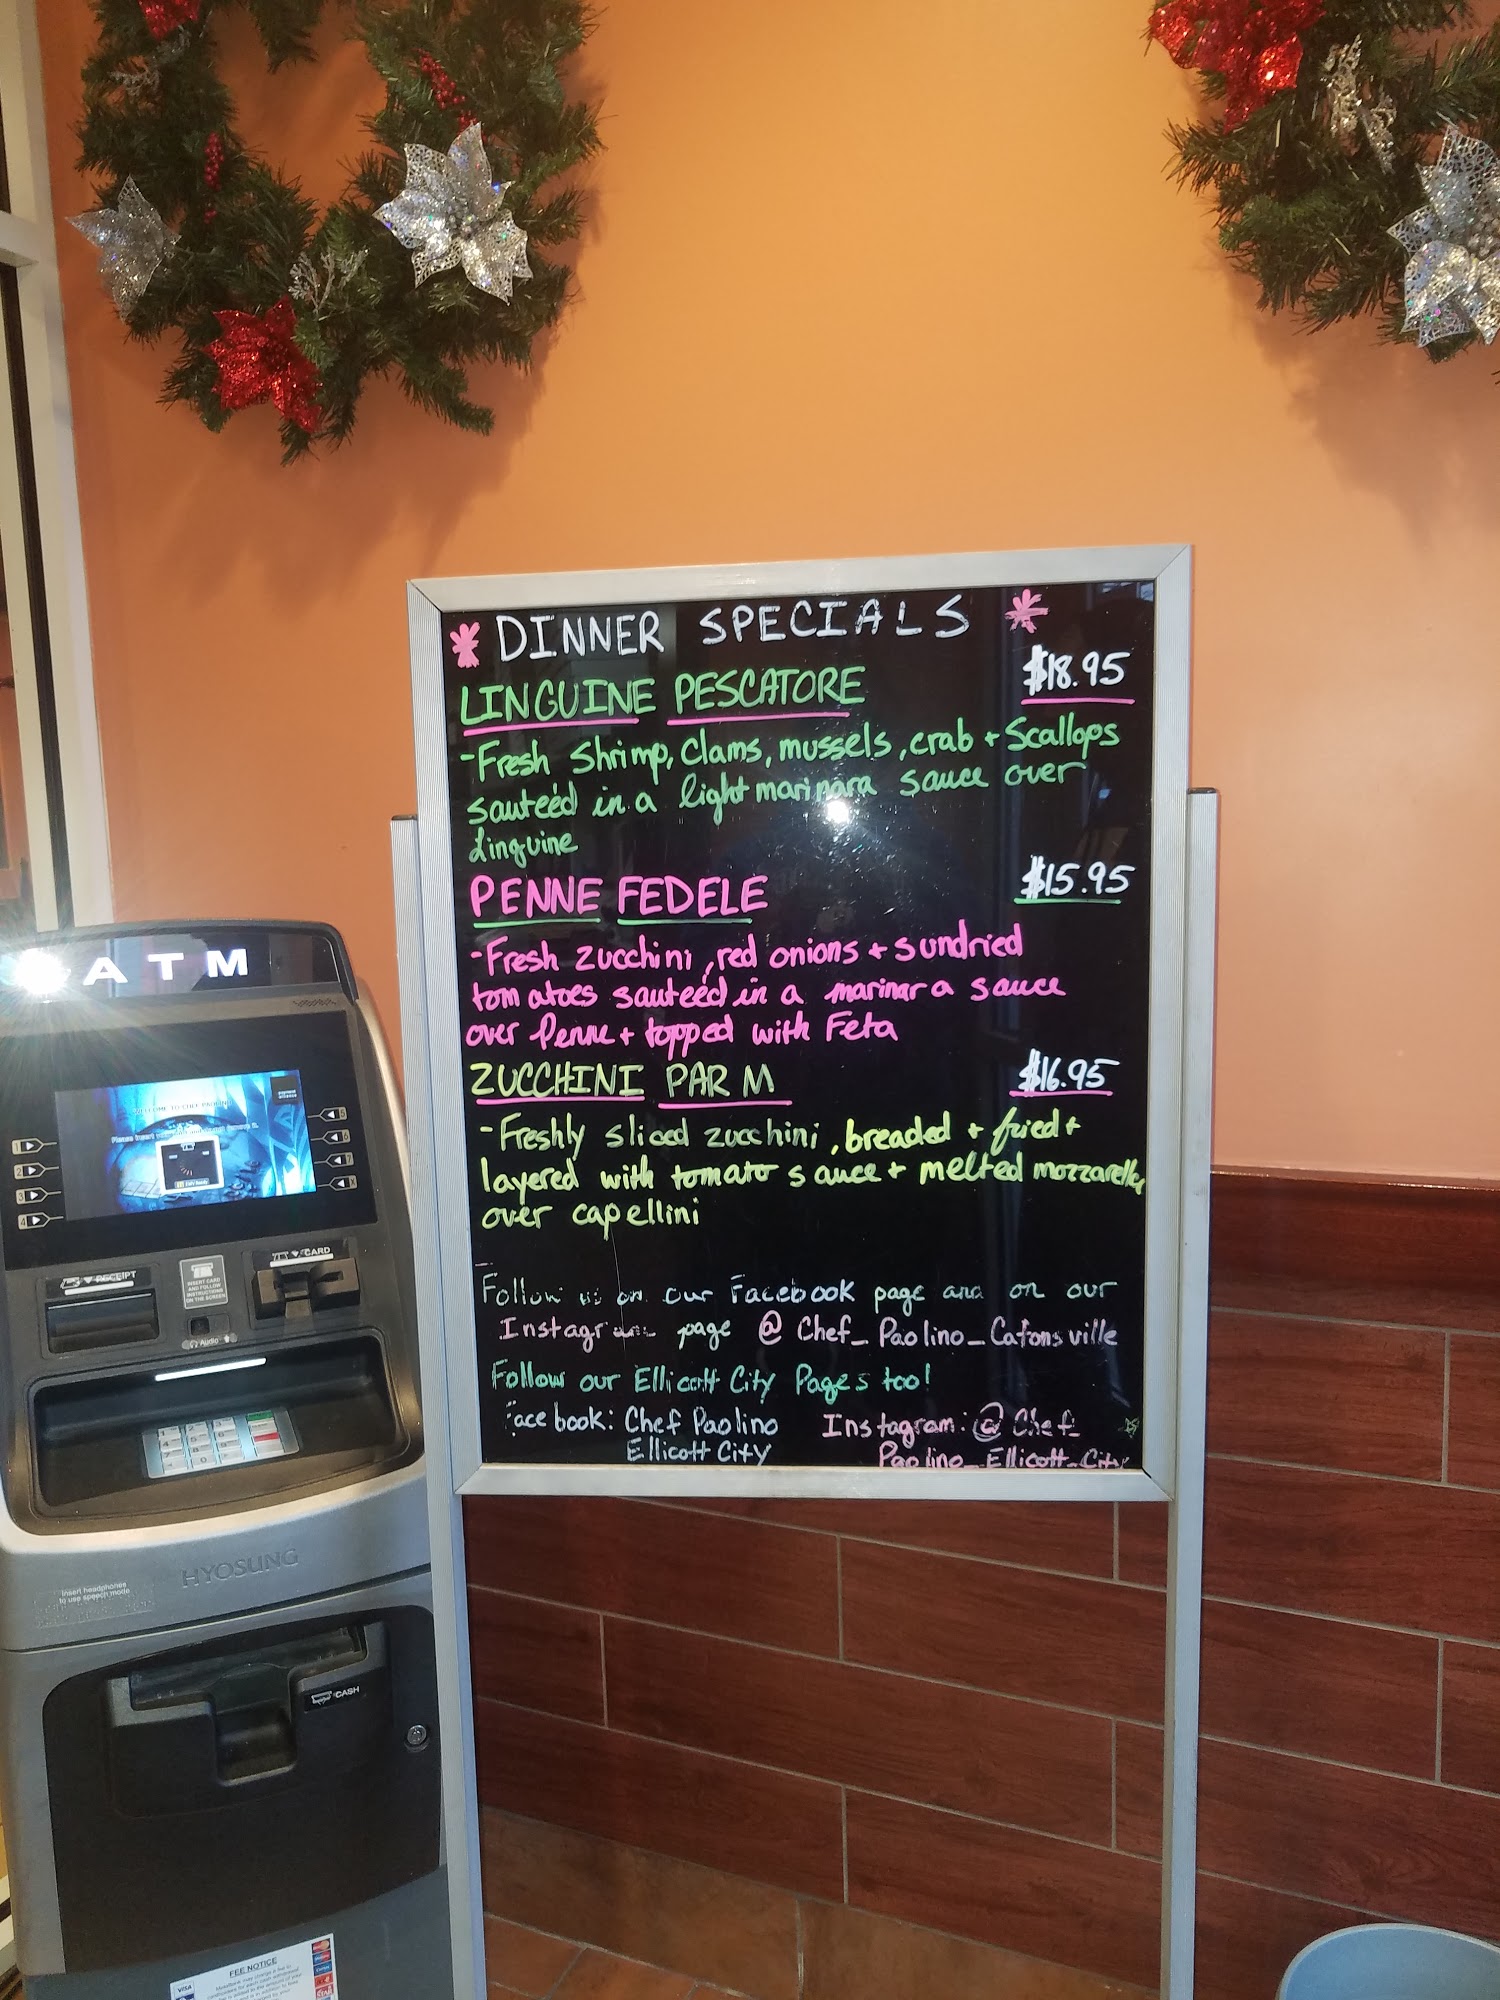 * DINNER SPECIALS *
LINGUINE PESCATORE $18.95
-Fresh Shrimp, Clams, mussels, crab + Scallops
sauteéd in a light marinara sauce over
Linguine
PENNE FEDELE $15.95
-Fresh zucchini, red onions + sundried
tomatoes sauteéd in a marinara sauce
over Penne + topped with Feta
ZUCCHINI PARM $16.95
-Freshly sliced zucchini, breaded + fried +
layered with tomato sauce + melted mozzarella
over capellini
Follow us on our Facebook page and on our
Instagram page @ Chef_Paolino_Catonsville
Follow our Ellicott City Pages too!
Facebook: Chef Paolino
Ellicott City
Instagram: @ Chef_
Paolino_Ellicott_City
ATM
WELCOME TO CHEF PAOLINO
Please insert
1
2
3
4
5
6
7
RECEIPT
CARD
INSERT CARD
AND FOLLOW
INSTRUCTIONS
ON THE SCREEN
Audio
HYOSUNG
Insert headphones
to use speech mode
CASH
VISA
FEE NOTICE